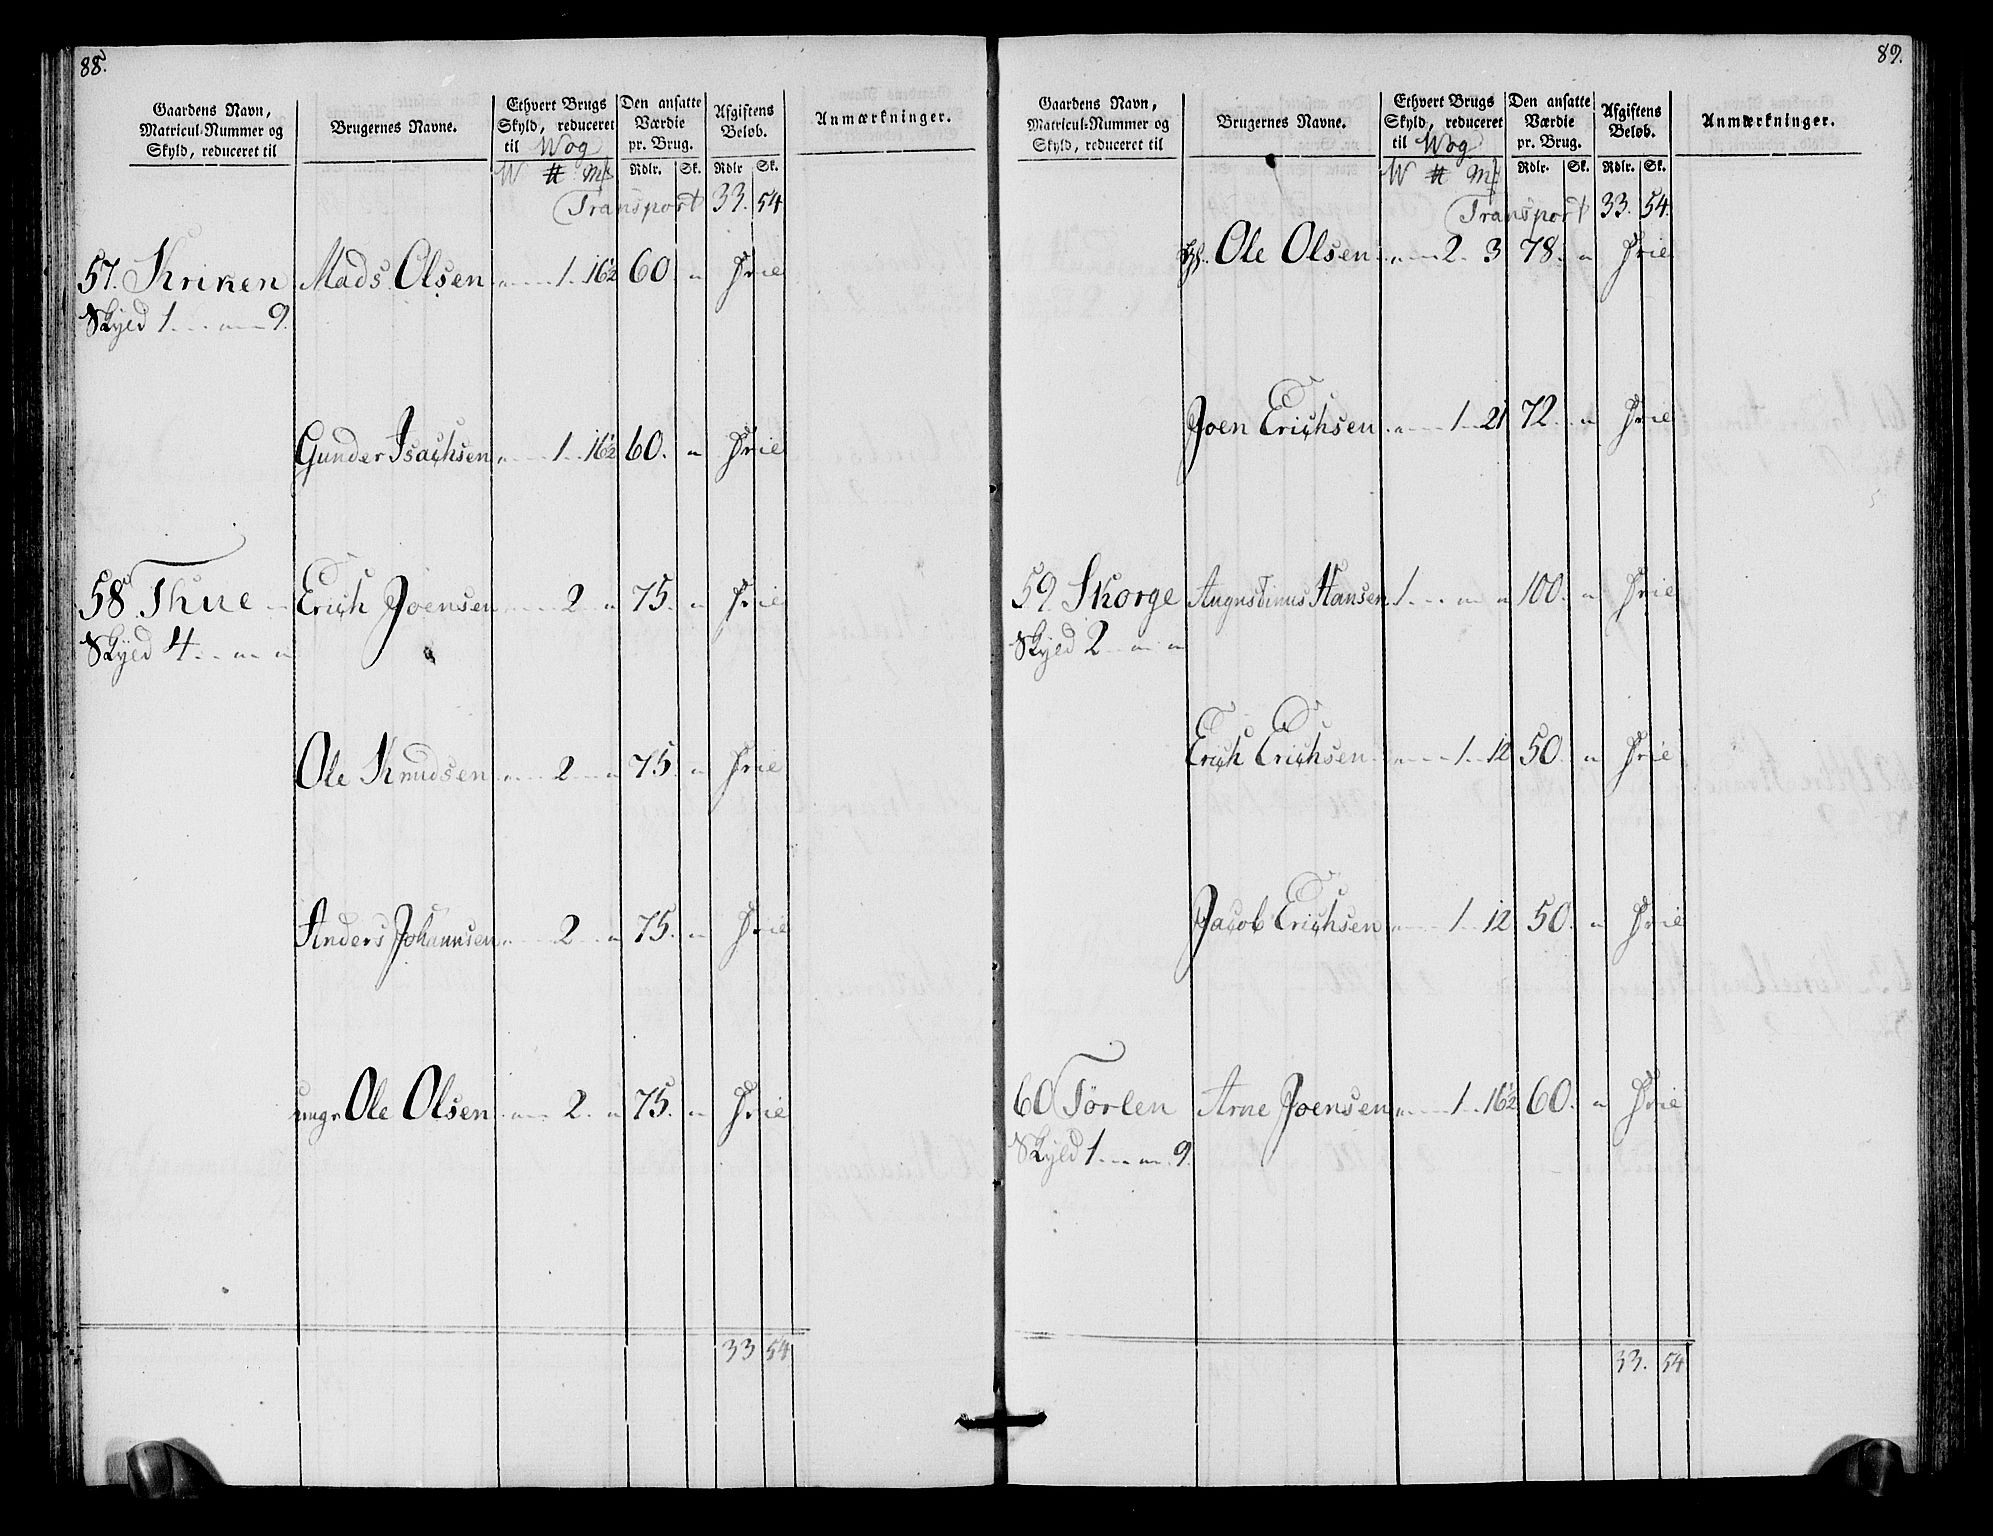 88.
Gaardens Navn, Matricul-Nummer og Skyld, reduceret til
Brugernes Navne.
Ethvert Brugs Skyld, reduceret til Wog
Den ansatte Værdie pr. Brug.
Afgiftens Beløb.
Anmærkninger.
W # M§ Rdlr. Sk. Rdlr Sk.
Transport 33. 54
57. Kriken Mads Olsen „ 1. 16½ 60. „ Frie
Skyld 1. „ 9.
Gunder Isachsen „ 1. 16½ 60. „ Frie
58. Thue Erich Joensen „ 2 „ 75. „ Frie
Skyld 4. „ „
Ole Knudsen „ 2 „ 75. „ Frie
Anders Johannsen „ 2 „ 75. „ Frie
unge Ole Olsen „ 2. „ 75. „ Frie
33 54
89.
Gaardens Navn, Matricul-Nummer og Skyld, reduceret til
Brugernes Navne.
Ethvert Brugs Skyld, reduceret til Wog
Den ansatte Værdie pr. Brug.
Afgiftens Beløb.
Anmærkninger.
W # M§ Rdlr. Sk. Rdlr. Sk.
Transport 33. 54.
Ole Olsen „ 2. 3 78. „ Frie
Joen Erichsen „ 1. 21 72. „ Frie
59. Skorge Augustinus Hansen 1. „ „ 100. „ Frie
Skyld 2 „ „
Erich Erichsen „ 1. 12 50. „ Frie
Jacob Erichsen „ 1. 12 50. „ Frie
60 Törlen Arne Joensen „ 1. 16½ 60. „ Frie
Skyld 1. „ 9.
33. 54